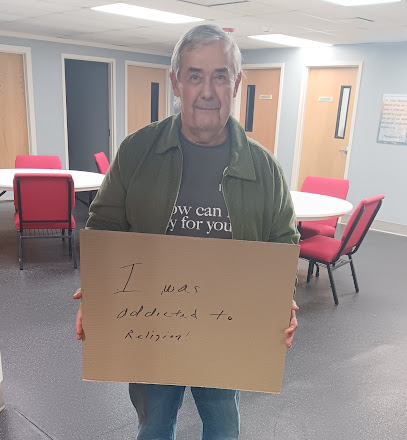 ow can
y for you
I was
addicted to.
Religion!